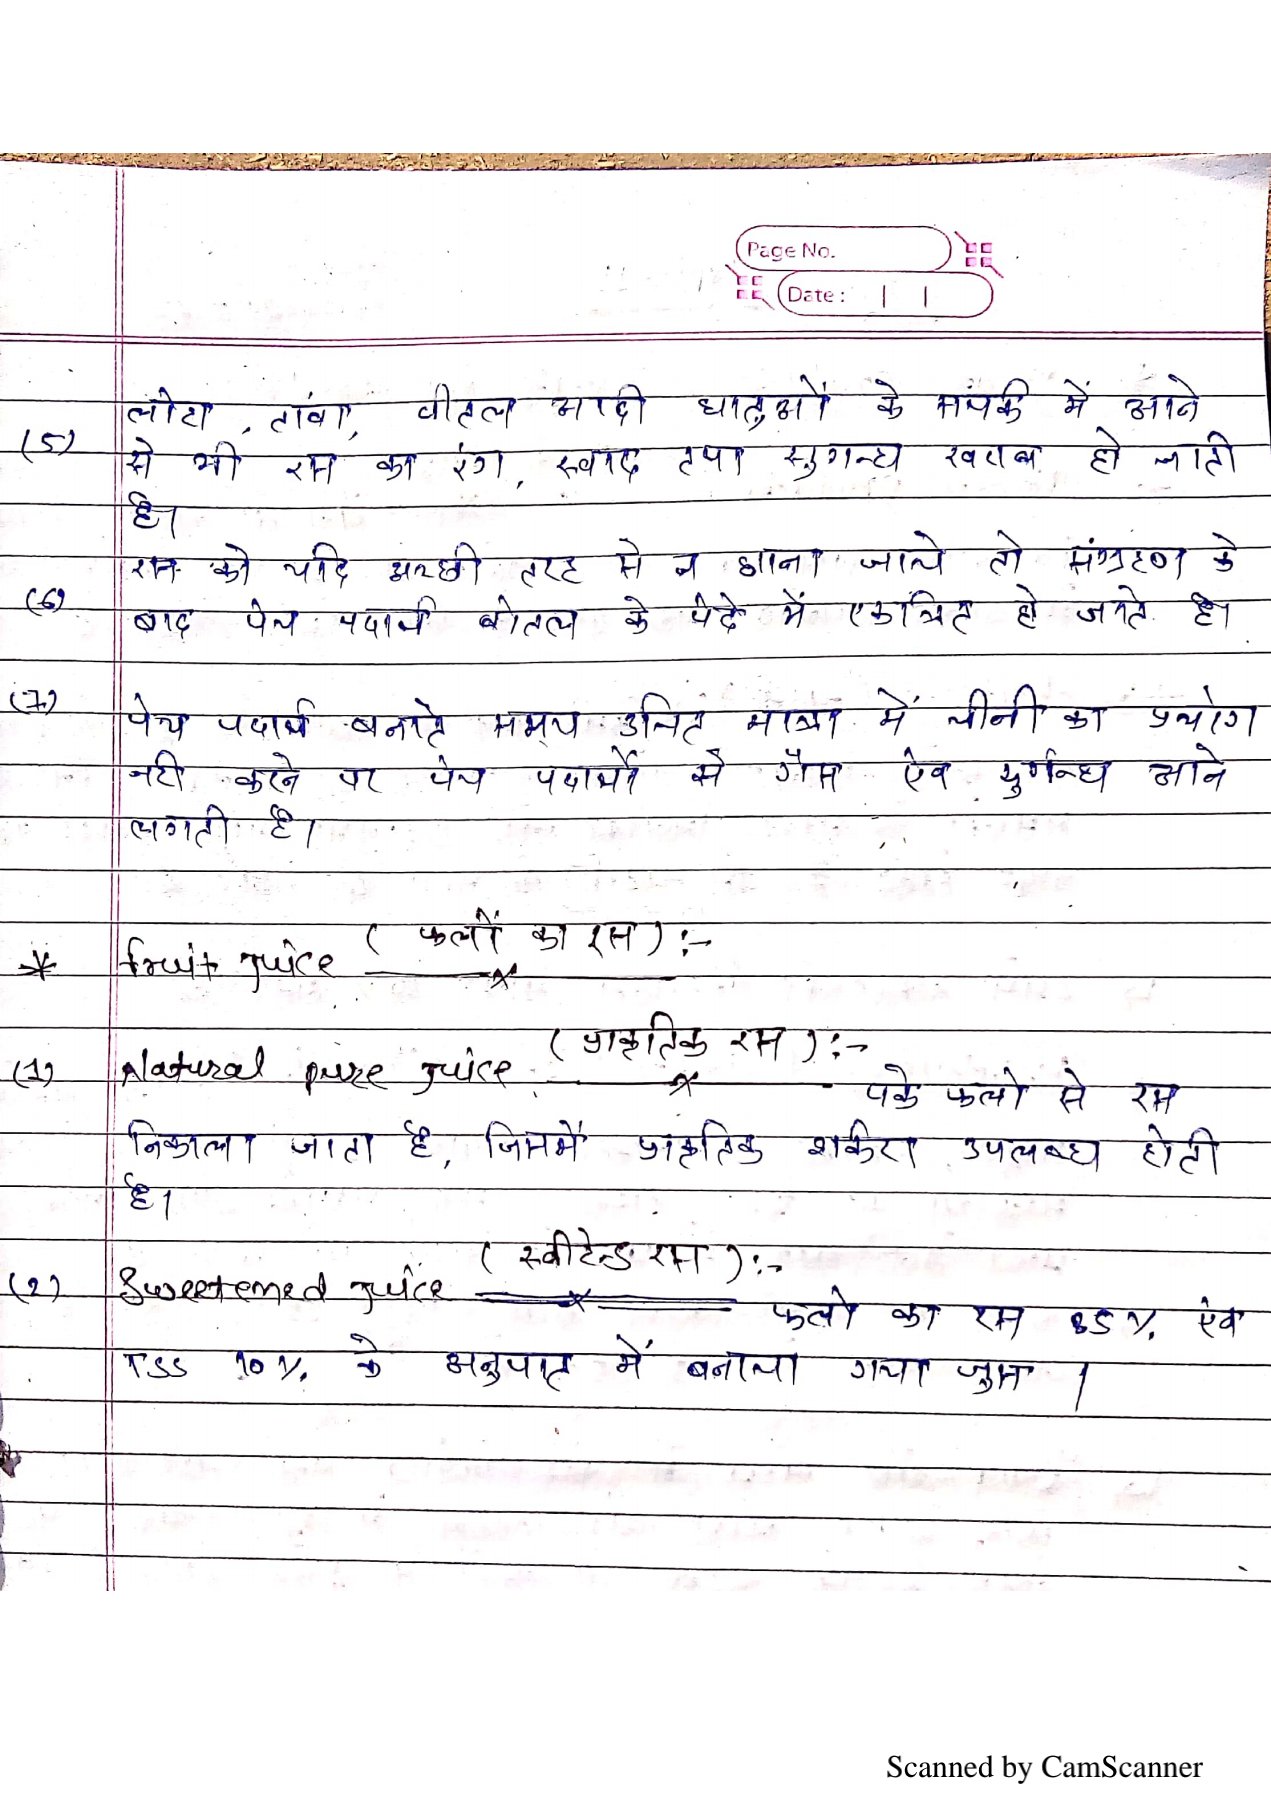 Page No.
Date : | |
लोहा, तांबा, पीतल आदी धातुओं के संपर्क में आने
(5) से भी रस का रंग, स्वाद तथा सुगन्ध खराब हो जाती
है।
रस को यदि अच्छी तरह से न छाना जाये तो संग्रहण के
(6) बाद पेय पदार्थ बोतल के पेंदे में एकत्रित हो जाते है।
(7) पेय पदार्थ बनाते समय उचित मात्रा में चीनी का प्रयोग
नही करने पर पेय पदार्थों से गैस ऐव दुर्गन्ध आने
लगती है।
* fruit juice (फलों का रस) :-
(1) Natural pure juice (प्राकृतिक रस) :- पके फलो से रस
निकाला जाता है, जिसमें प्राकृतिक शर्करा उपलब्ध होती
है।
(2) Sweetened juice (स्वीटेन्ड रस) :- फलो का रस 85%. ऐव
TSS 10%. के अनुपात में बनाया गया जुस।
Scanned by CamScanner